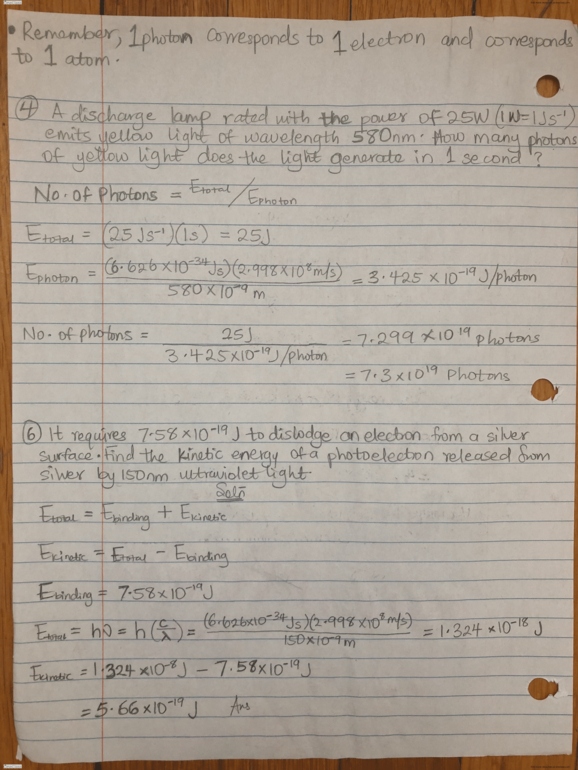 • Remember, 1 photon corresponds to 1 electron and corresponds
to 1 atom.
④ A discharge lamp rated with the power of 25W (1W=1Js⁻¹)
emits yellow light of wavelength 580nm. How many photons
of yellow light does the light generate in 1 second?
No. of Photons = Etotal/Ephoton
Etotal = (25 Js⁻¹)(1s) = 25J
Ephoton = (6.626×10⁻³⁴Js)(2.998×10⁸m/s)/580×10⁻⁹m = 3.425×10⁻¹⁹J/photon
No. of photons = 25J/3.425×10⁻¹⁹J/photon = 7.299×10¹⁹ photons
= 7.3×10¹⁹ Photons
⑥ It requires 7.58×10⁻¹⁹J to dislodge an electron from a silver
surface. Find the kinetic energy of a photoelectron released from
silver by 150nm ultraviolet light
Soln
Etotal = Ebinding + Ekinetic
Ekinetic = Etotal - Ebinding
Ebinding = 7.58×10⁻¹⁹J
Etotal = hν = h(c/λ) = (6.626×10⁻³⁴Js)(2.998×10⁸m/s)/150×10⁻⁹m = 1.324×10⁻¹⁸J
Ekinetic = 1.324×10⁻⁸J - 7.58×10⁻¹⁹J
= 5.66×10⁻¹⁹J Ans